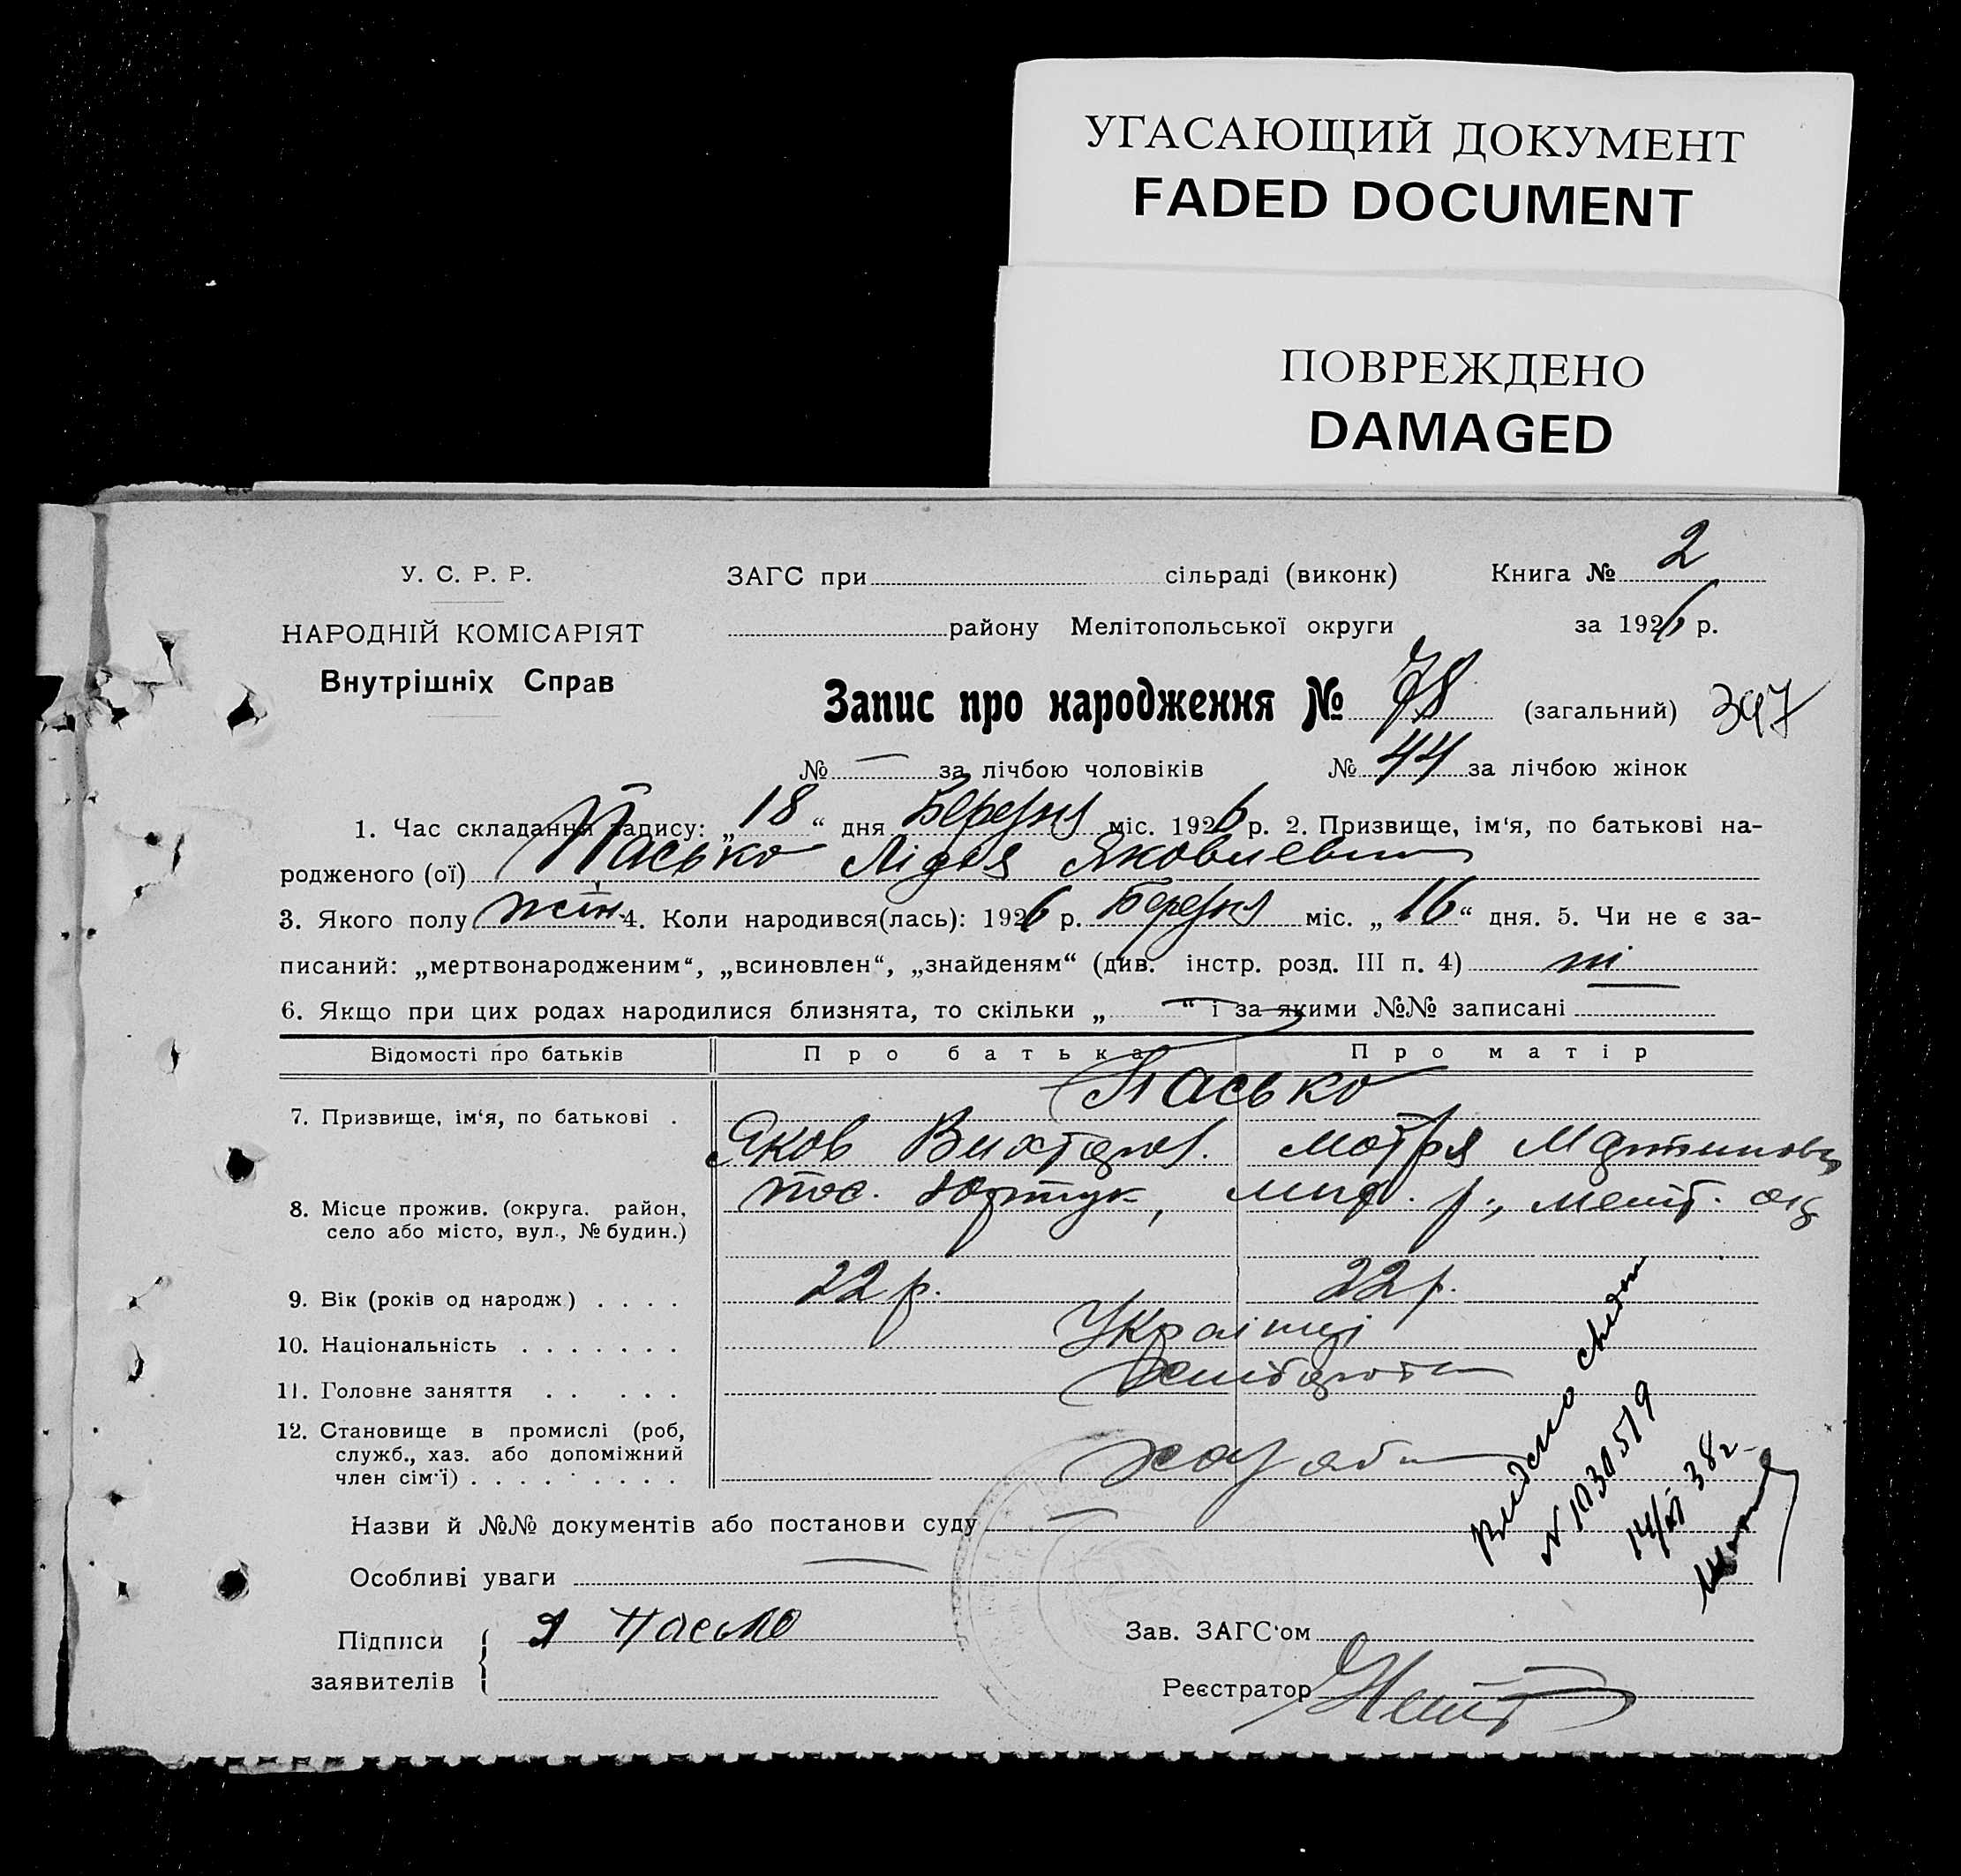 УГАСАЮЩИЙ ДОКУМЕНТ
FADED DOCUMENT
ПОВРЕЖДЕНО
DAMAGED
У. С. Р. Р.
НАРОДНІЙ КОМІСАРІЯТ
Внутрішніх Справ
ЗАГС при сільраді (виконк) Книга № 2
району Мелітопольської округи за 1926 р.
Запис про народження № 78 (загальний) 397
№ — за лічбою чоловіків № 44 за лічбою жінок
1. Час складання запису: „18“ дня Березня міс. 1926 р. 2. Призвище, ім'я, по батькові на-
родженого (ої) Пасько Лідія Яковлевна
3. Якого полу жін. 4. Коли народився(лась): 1926 р. Березня міс. „16“ дня. 5. Чи не є за-
писаний: „мертвонародженим“, „всиновлен“, „знайденям“ (див. інстр. розд. III п. 4) ні
6. Якщо при цих родах народилися близнята, то скільки „ “ і за якими №№ записані
Відомості про батьків Про батька Про матір
Пасько
7. Призвище, ім'я, по батькові .
Яков Мотря Мартинов
8. Місце прожив. (округа. район, село або місто, вул., № будин.)
пос. р., Меліт. окр
9. Вік (років од народж) . . . . 22 р. 22 р.
10. Національність . . . . . . . Українці
11. Головне заняття . . . . .
12. Становище в промислі (роб, служб., хаз. або допоміжний член сім'ї) . . . . . . . . .
Назви й №№ документів або постанови суду —
Особливі уваги —
Підписи заявителів
Я Пасько
Зав. ЗАГС'ом
Реєстратор
Видано
N 1030519
38 г.